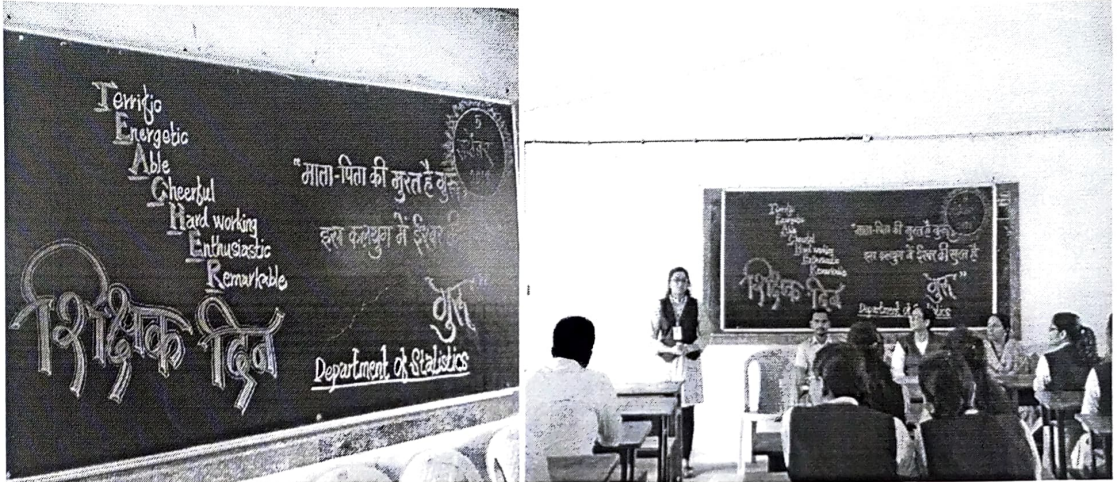 Terrific
Energetic
Able
Cheerful
Hard working
Enthusiastic
Remarkable
शिक्षक दिन
5
सप्टेंबर
"माता-पिता की मुरत है गुरू
इस कलयुग में ईश्वर की
गुरू"
Department of Statistics
Terrific
Energetic
Able
Cheerful
Hard working
Enthusiastic
Remarkable
शिक्षक दिन
"माता-पिता की मुरत है गुरू
इस कलयुग में ईश्वर की सुरत है
गुरू"
Department of Statistics